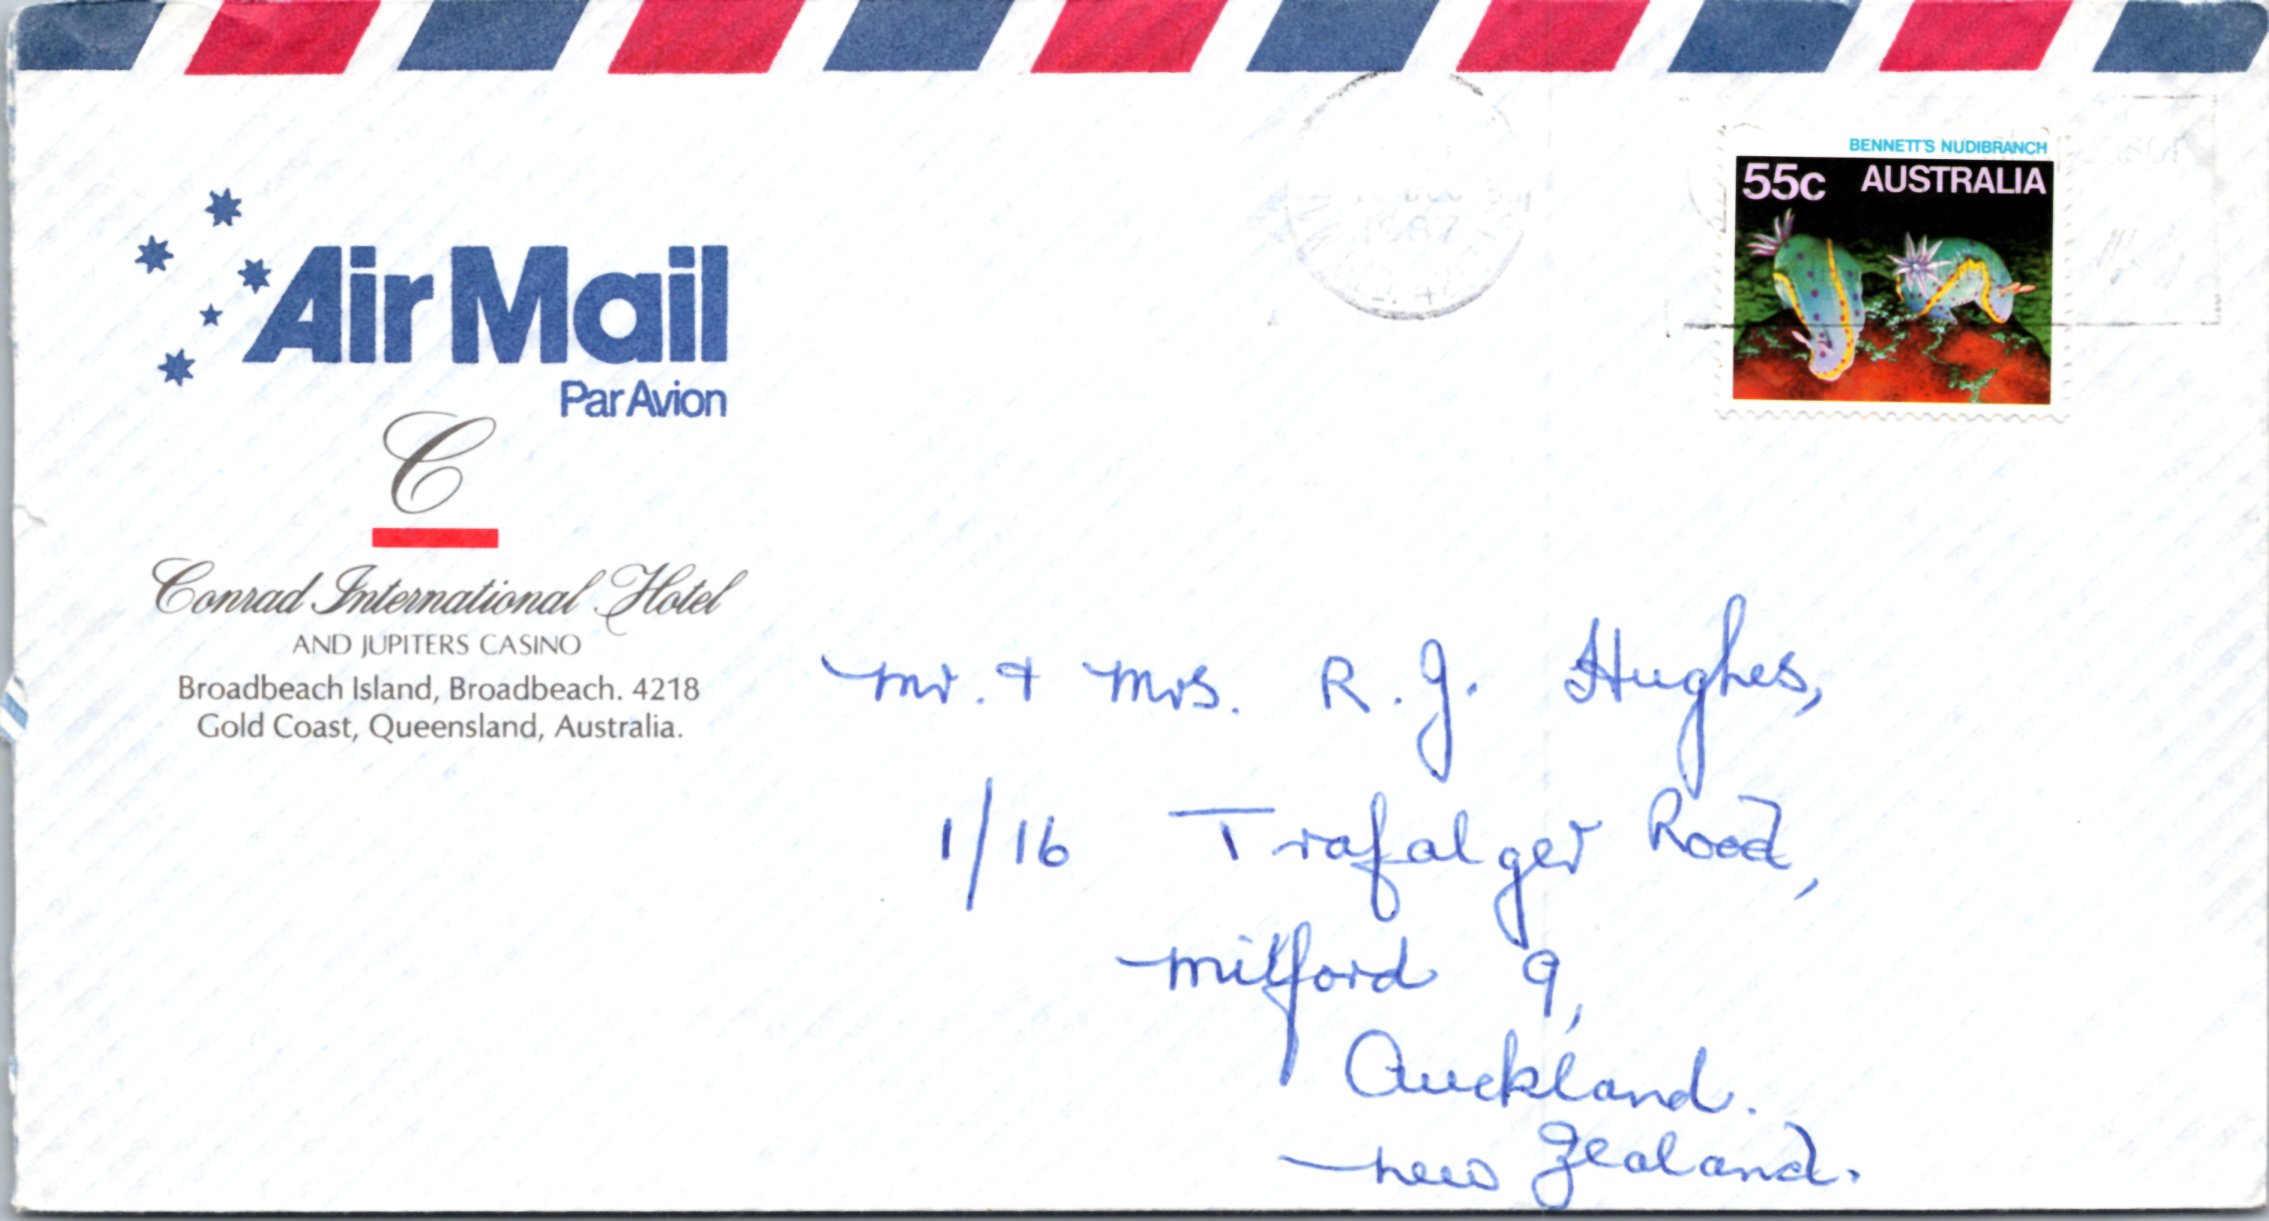 BENNETT'S NUDIBRANCH
55c AUSTRALIA
Air Mail
Par Avion
C
Conrad International Hotel
AND JUPITERS CASINO
Broadbeach Island, Broadbeach. 4218
Gold Coast, Queensland, Australia.
Mr. & Mrs. R. J. Hughes,
1/16 Trafalger Road,
Milford 9,
Auckland.
New Zealand.